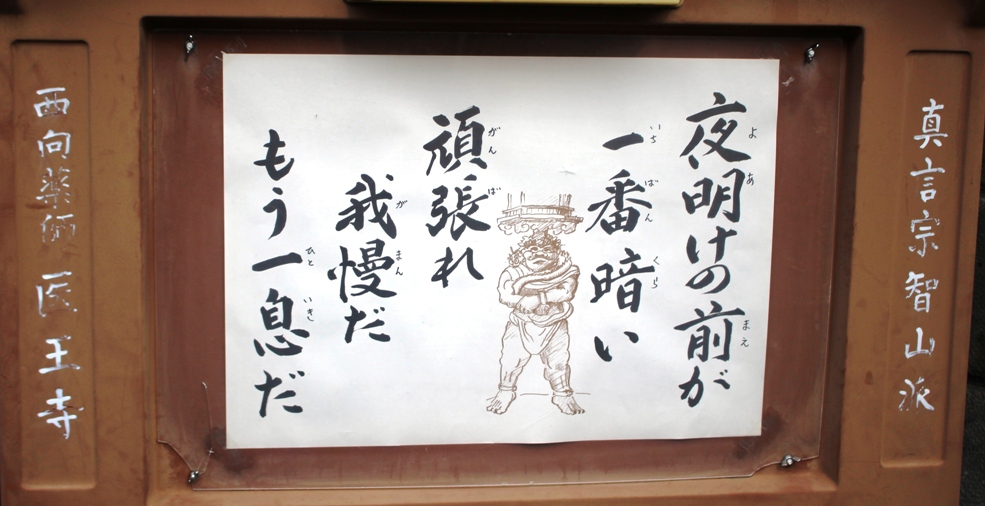 真言宗智山派
夜明けの前が
一番暗い
頑張れ
我慢だ
もう一息だ
西向薬師医王寺